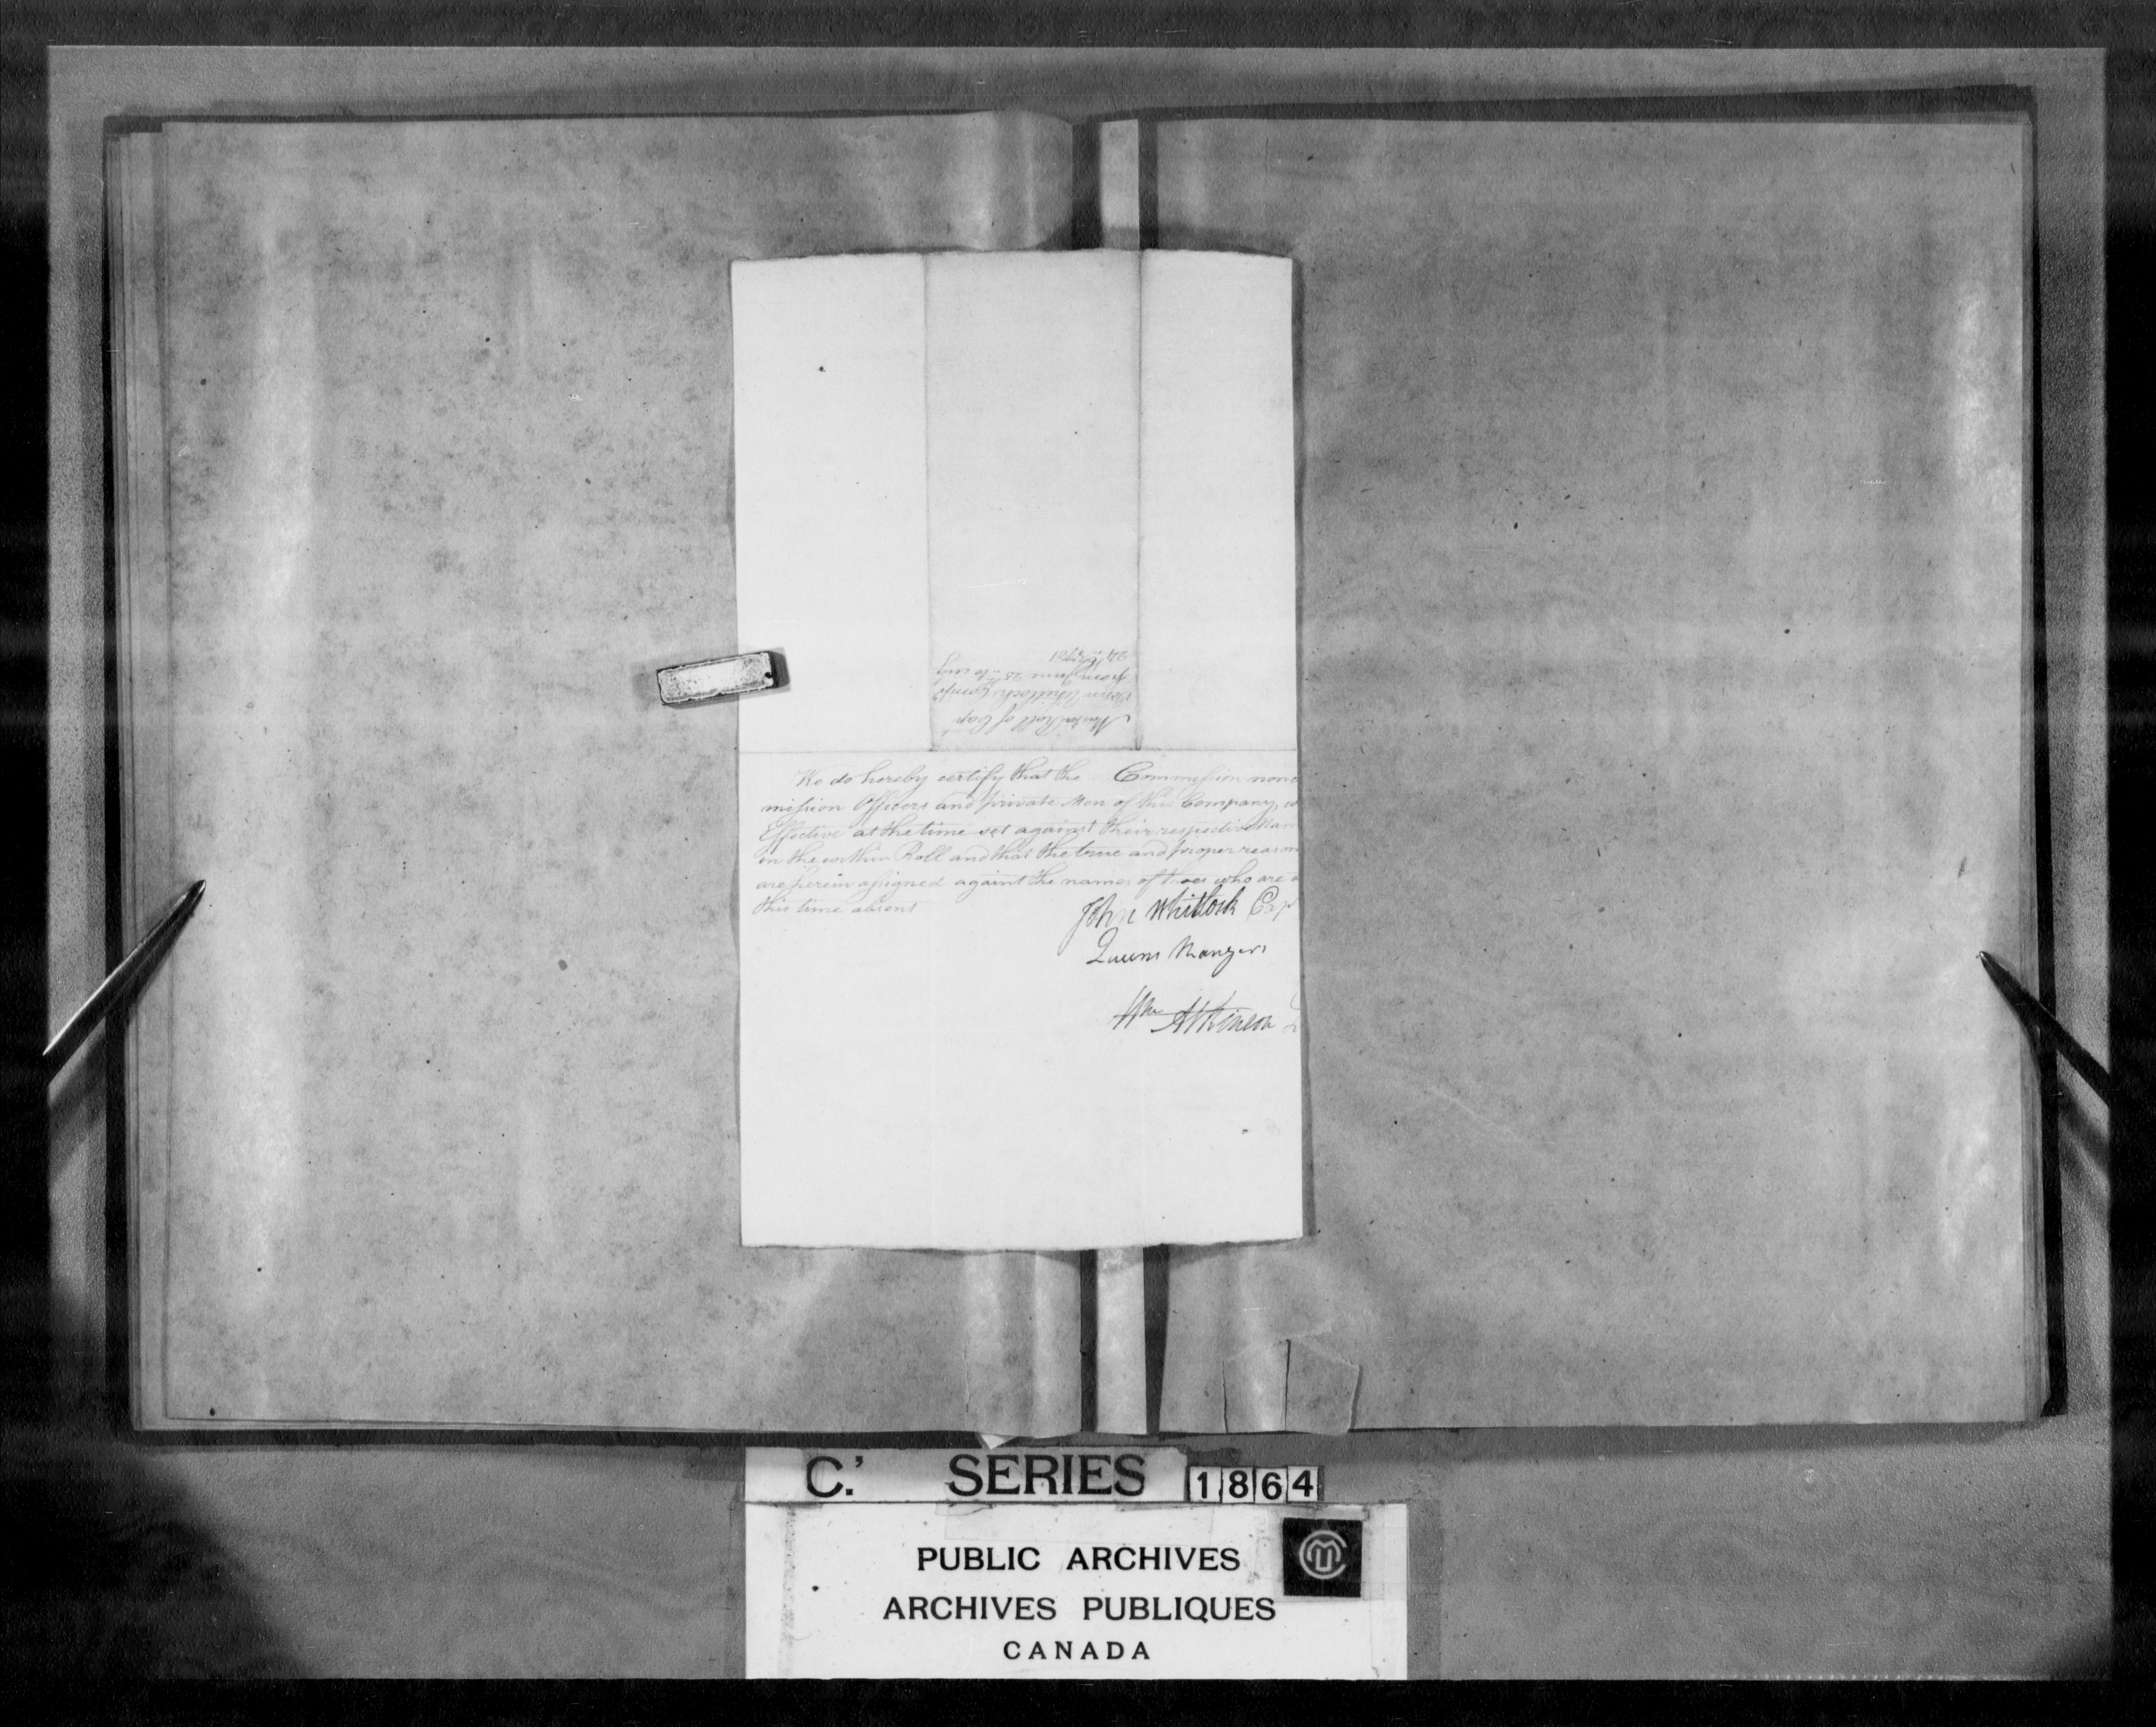 Muster Roll of Cap.t
John Whitlocks Comp.y
from June 25.th to Aug
24.th 1781
We do hereby certify that the Commission none
mission Officers and private Men of this Company, w
Effective at the time set against their respective Nam
in the within Roll and that the true and proper reason
are herein assigned against the names of those who are a
this time absent
John Whitlock Cap
Queens Rangers
Wm Atkinson
C.' SERIES 1864
PUBLIC ARCHIVES
ARCHIVES PUBLIQUES
CANADA